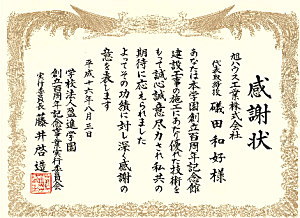 感謝状
旭ハウス工業株式会社
代表取締役 礒田和好様
あなたは本学園創立百周年記念館
建設工事の施工にあたり優れた技術を
もって誠心誠意尽力され私共の
期待に応えられました
よってその功績に対し深く感謝の
意を表します
平成十六年八月三日
学校法人盈進学園
創立百周年記念事業実行委員会
実行委員長 藤井啓造